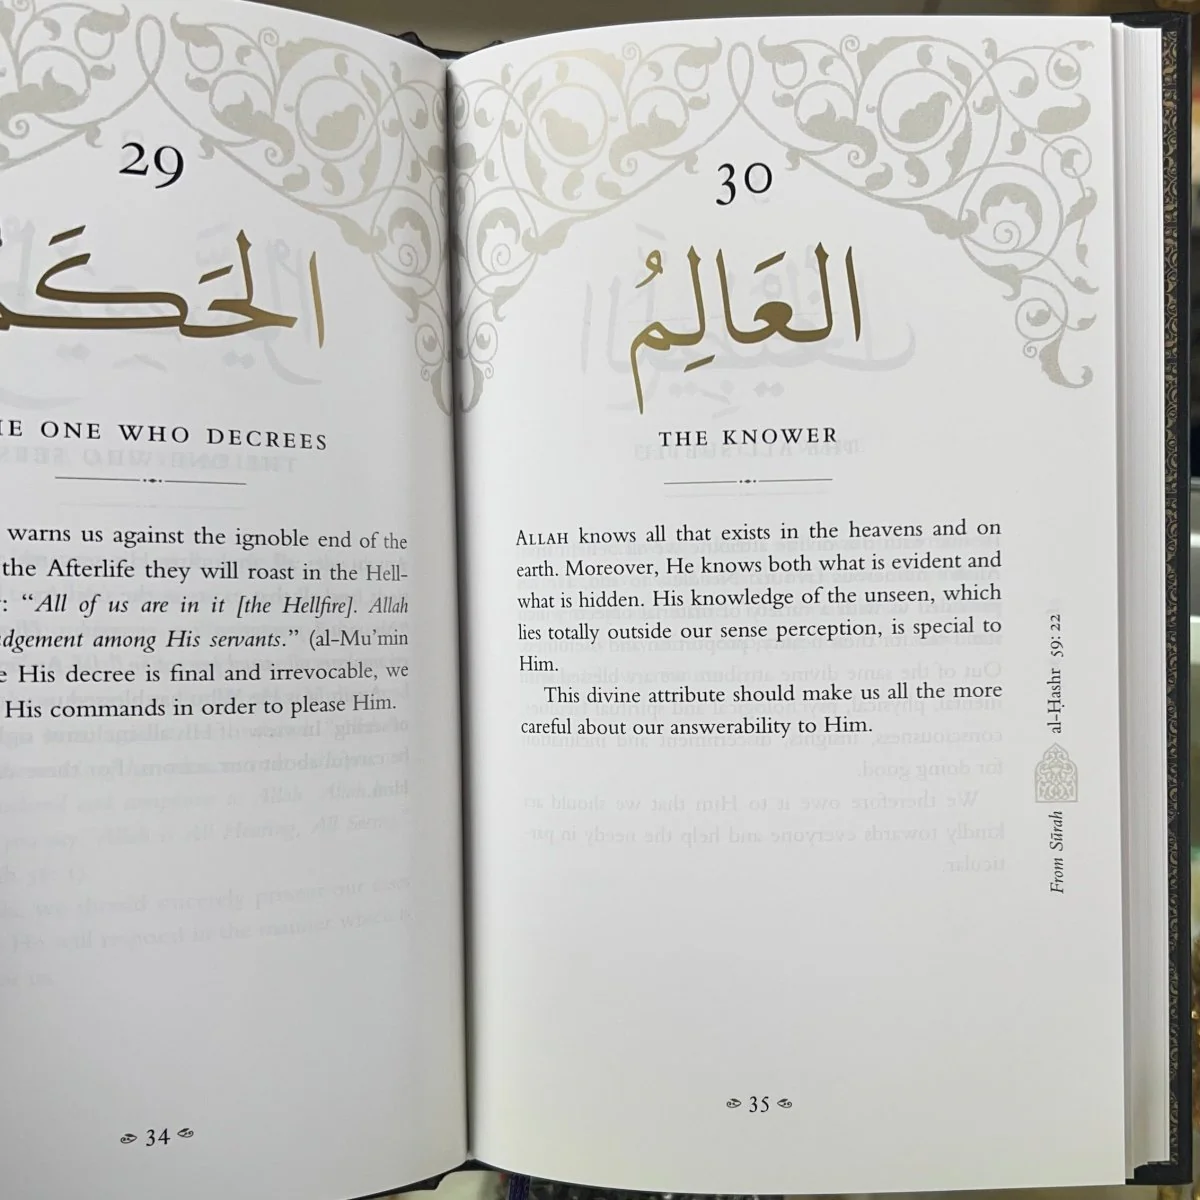 29
الحَكَـ
ONE WHO DECREES
warns us against the ignoble end of the
the Afterlife they will roast in the Hell-
: “All of us are in it [the Hellfire]. Allah
among His servants.” (al-Mu’min
His decree is final and irrevocable, we
His commands in order to please Him.
34
30
العَالِمُ
THE KNOWER
ALLAH knows all that exists in the heavens and on
earth. Moreover, He knows both what is evident and
what is hidden. His knowledge of the unseen, which
lies totally outside our sense perception, is special to
Him.
This divine attribute should make us all the more
careful about our answerability to Him.
From Sūrah al-Ḥashr 59: 22
35